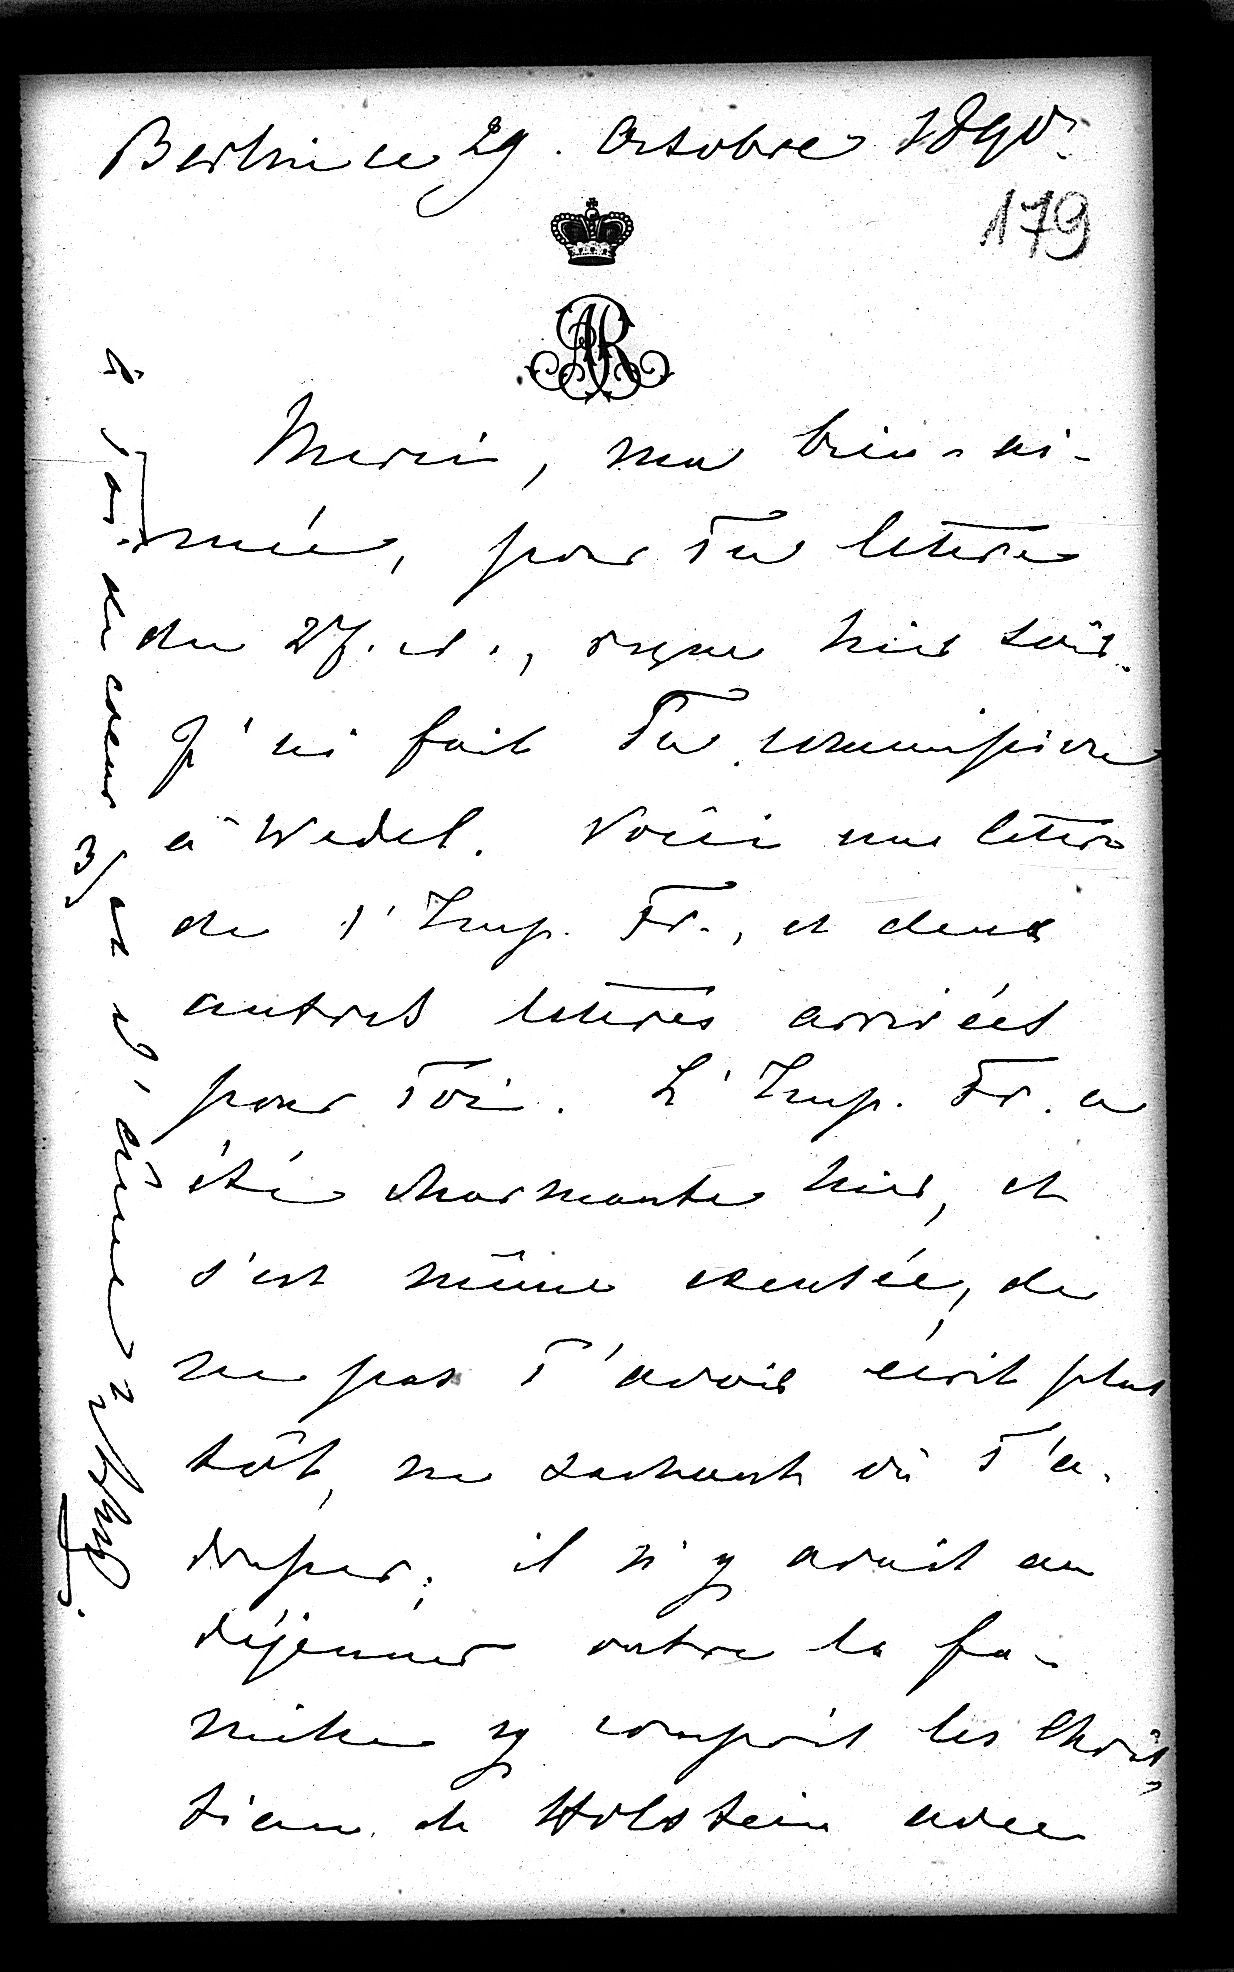 Berlin ce 29. Octobre 1890.
179
AR
Merci, ma bien-ai-
mée, pour Ta lettre
du 27. ct., reçue hier soir.
J'ai fait Ta commission
à Wedel. Voici une lettre
de l'Imp. Fr., et deux
autres lettres arrivées
pour Toi. L'Imp. Fr. a
été charmante hier, et
s'est même excusée, de
ne pas T'avoir écrit plus
tôt, ne sachant où T'a-
dresser; il n'y avait au
déjeuner outre la fa-
mille y compris les Chris-
tian de Holstein avec
à Toi de coeur
et d'âme